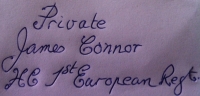 Private
James Connor
HC 1st European Regt.